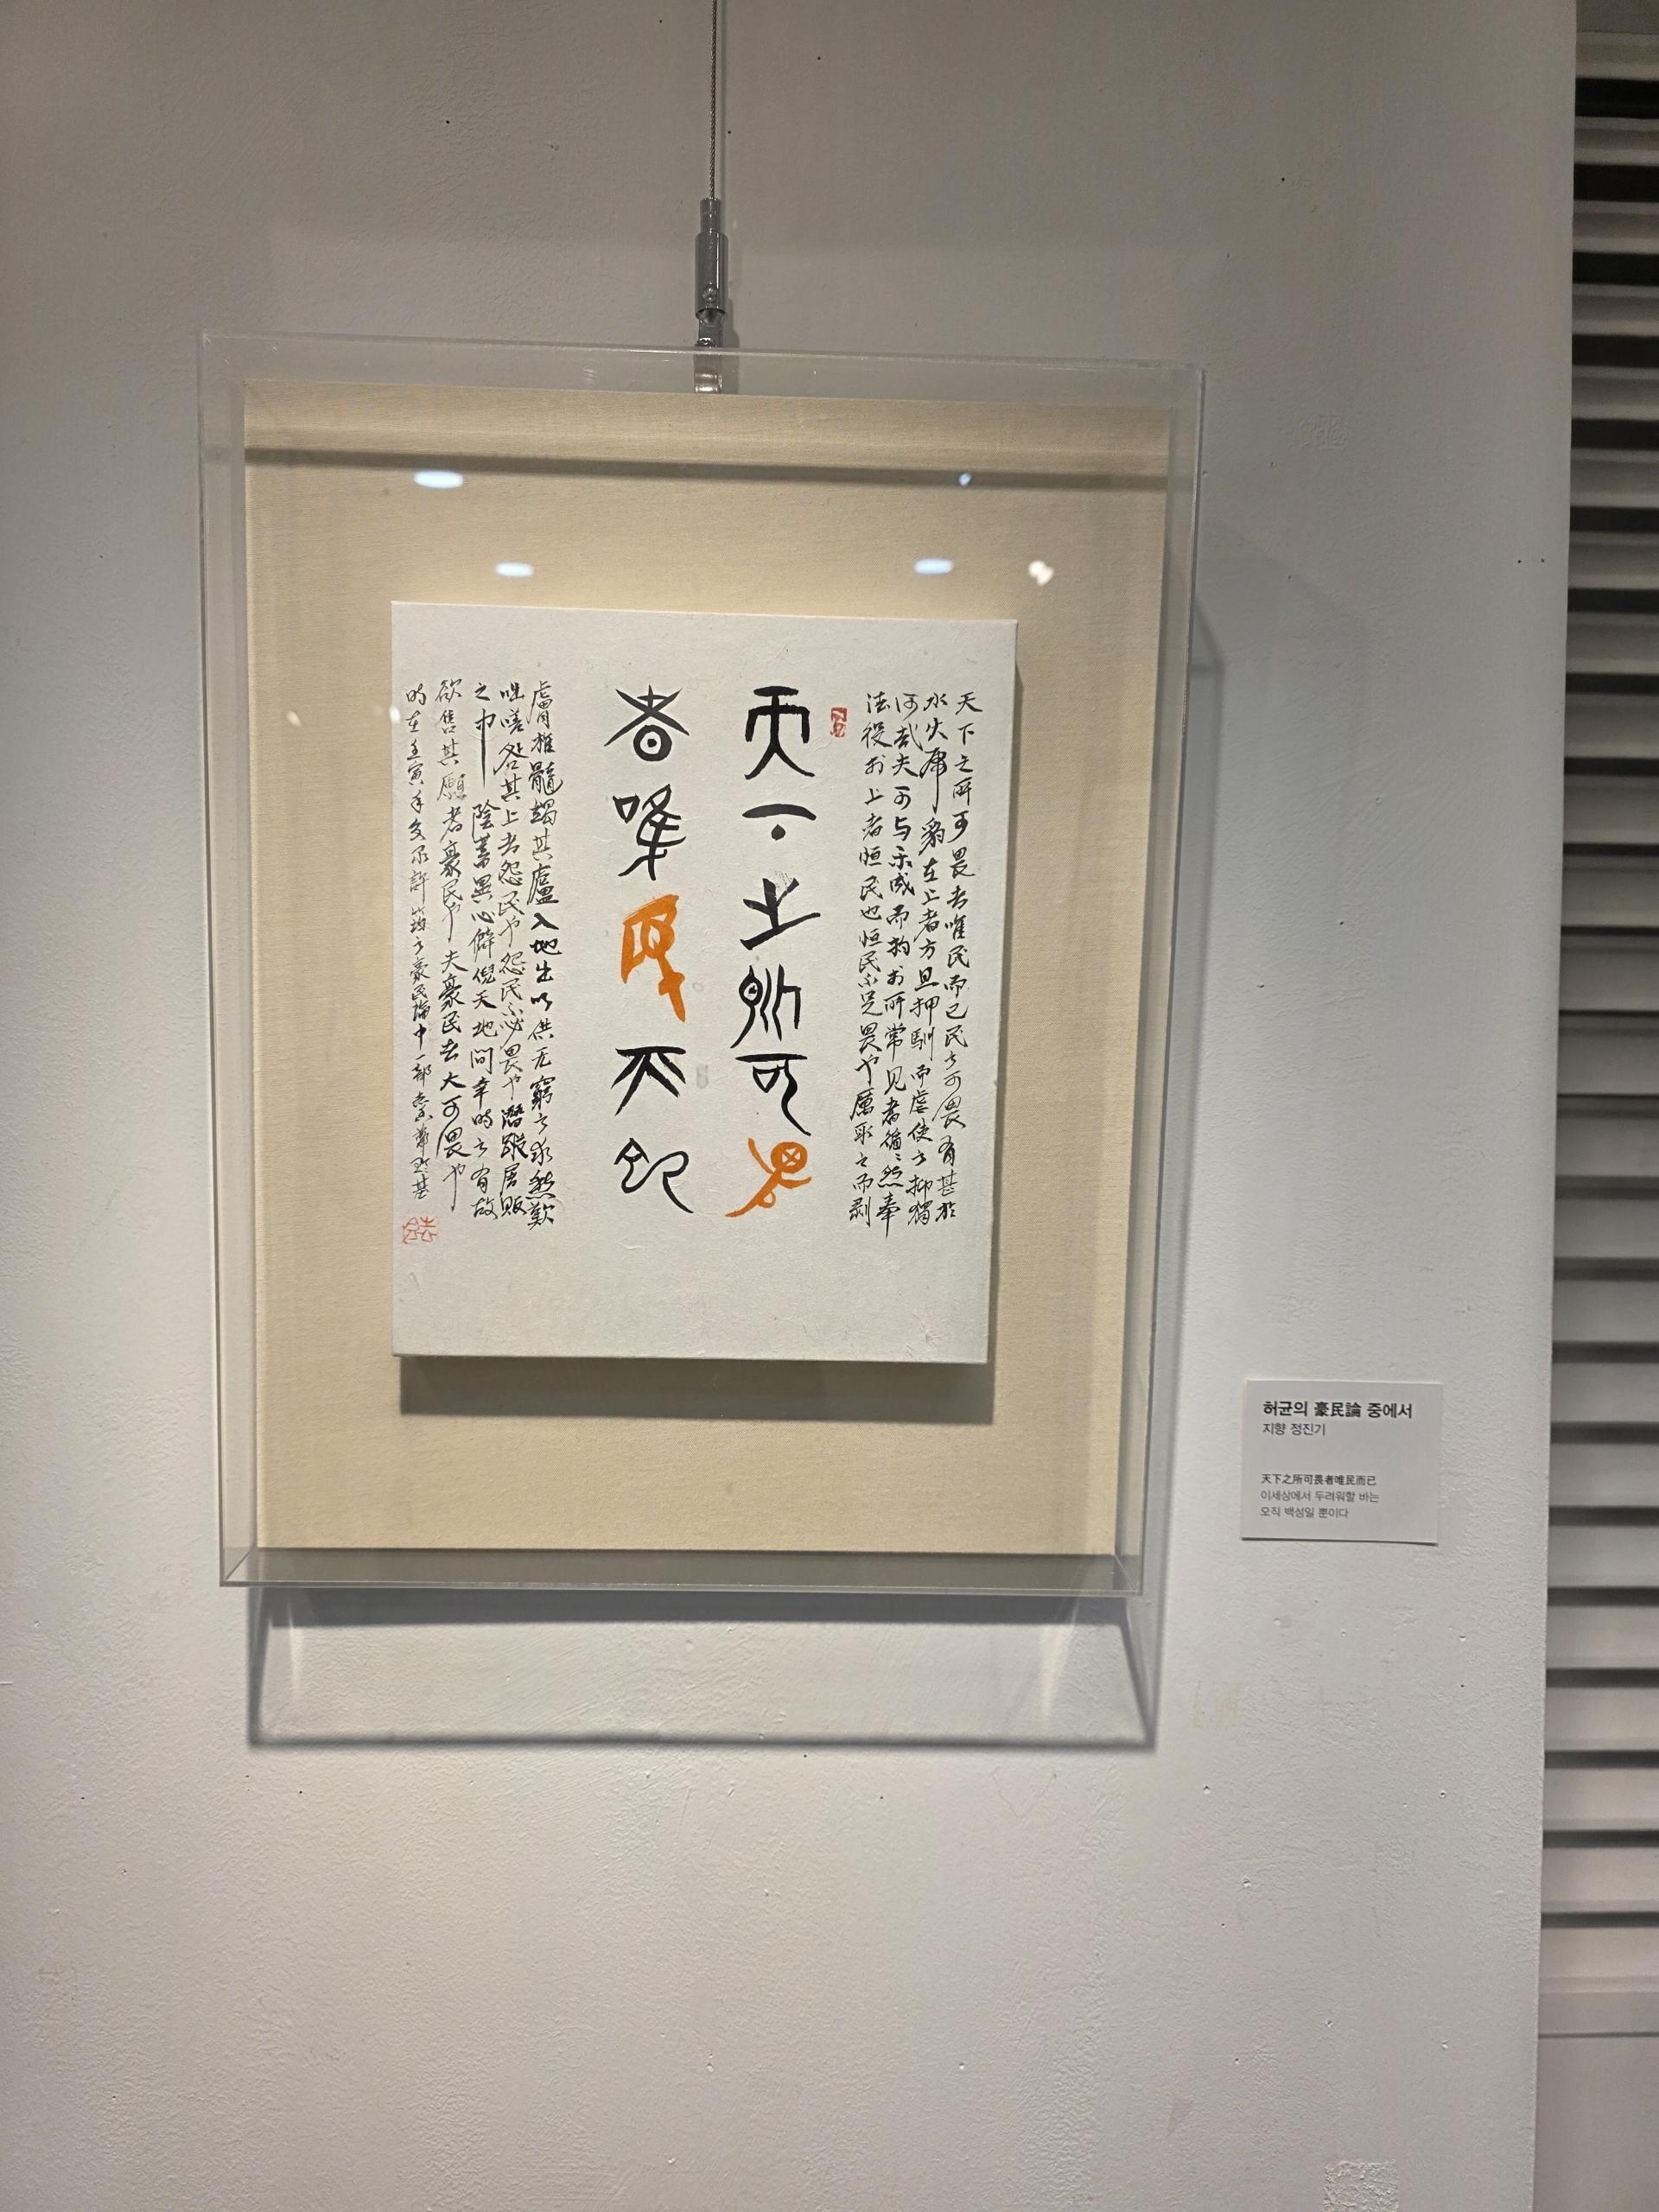 天下之所可畏者唯民而已民之可畏有甚於
水火虎豹在上者方且狎馴而虐使之抑獨
何哉夫可与乐成而拘於所常见者循〻然奉
法役於上者恒民也恒民不足畏也厲取之而剥
天下之所可畏
者唯民而已
膚椎髓竭其廬入地出以供无窮之求愁歎
咄嗟咎其上者怨民也怨民不必畏也潛蹤屠販
之中陰蓄異心僻倪天地間幸時之有故
欲售其願者豪民也夫豪民者大可畏也
時在壬寅年冬 許筠之豪民論中一部
허균의 豪民論 중에서
지향 정진기
天下之所可畏者唯民而已
이세상에서 두려워할 바는
오직 백성일 뿐이다